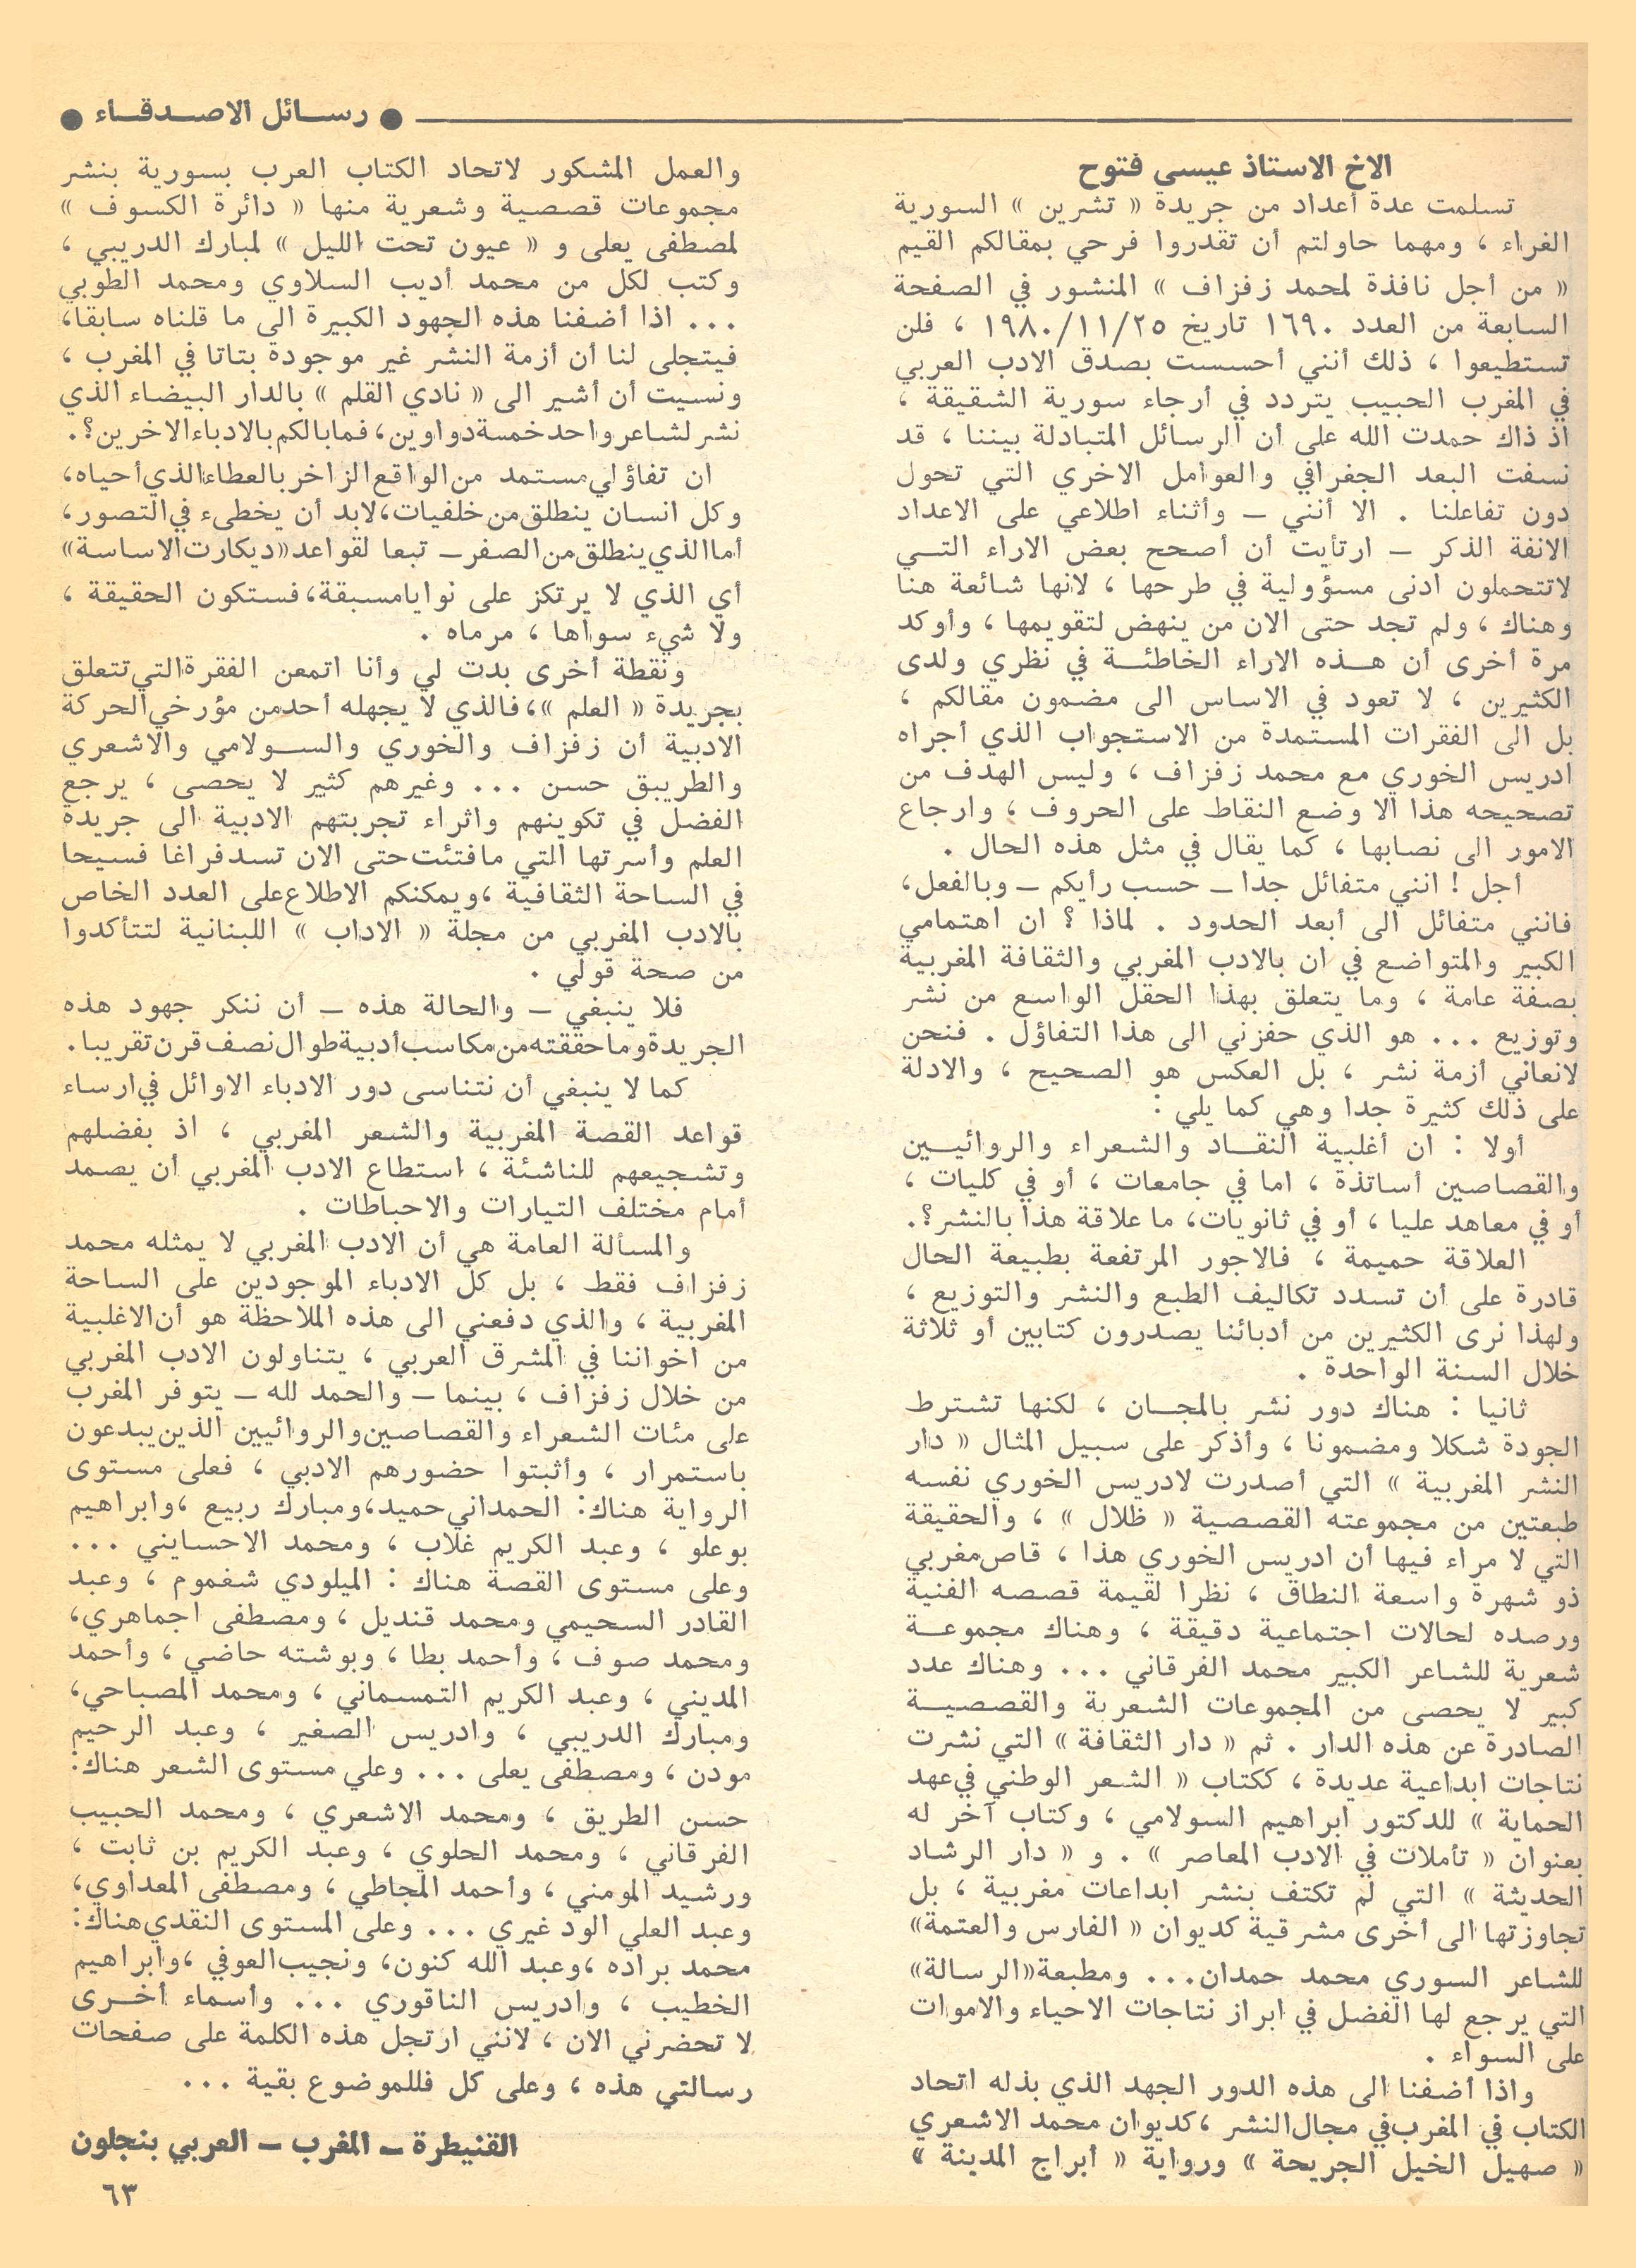 ● رسائل الاصدقاء ●
الاخ الاستاذ عيسى فتوح
تسلمت عدة أعداد من جريدة « تشرين » السورية
الغراء ، ومهما حاولتم أن تقدروا فرحي بمقالكم القيم
« من أجل نافذة لمحمد زفزاف » المنشور في الصفحة
السابعة من العدد ١٦٩٠ تاريخ ١٩٨٠/١١/٢٥ ، فلن
تستطيعوا ، ذلك أنني أحسست بصدق الادب العربي
في المغرب الحبيب يتردد في أرجاء سورية الشقيقة ،
اذ ذاك حمدت الله على أن الرسائل المتبادلة بيننا ، قد
نسفت البعد الجغرافي والعوامل الاخرى التي تحول
دون تفاعلنا . الا أنني – وأثناء اطلاعي على الاعداد
الانفة الذكر – ارتأيت أن أصحح بعض الاراء التي
لاتتحملون ادنى مسؤولية في طرحها ، لانها شائعة هنا
وهناك ، ولم تجد حتى الان من ينهض لتقويمها ، وأوكد
مرة أخرى أن هذه الاراء الخاطئة في نظري ولدى
الكثيرين ، لا تعود في الاساس الى مضمون مقالكم ،
بل الى الفقرات المستمدة من الاستجواب الذي أجراه
ادريس الخوري مع محمد زفزاف ، وليس الهدف من
تصحيحه هذا الا وضع النقاط على الحروف ، وارجاع
الامور الى نصابها ، كما يقال في مثل هذه الحال .
أجل ! انني متفائل جدا – حسب رأيكم – وبالفعل،
فانني متفائل الى أبعد الحدود . لماذا ؟ ان اهتمامي
الكبير والمتواضع في ان بالادب المغربي والثقافة المغربية
بصفة عامة ، وما يتعلق بهذا الحقل الواسع من نشر
وتوزيع ... هو الذي حفزني الى هذا التفاؤل . فنحن
لانعاني أزمة نشر ، بل العكس هو الصحيح ، والادلة
على ذلك كثيرة جدا وهي كما يلي :
أولا : ان أغلبية النقاد والشعراء والروائيين
والقصاصين أساتذة ، اما في جامعات ، أو في كليات ،
أو في معاهد عليا ، أو في ثانويات، ما علاقة هذا بالنشر؟.
العلاقة حميمة ، فالاجور المرتفعة بطبيعة الحال
قادرة على أن تسدد تكاليف الطبع والنشر والتوزيع ،
ولهذا نرى الكثيرين من أدبائنا يصدرون كتابين أو ثلاثة
خلال السنة الواحدة .
ثانيا : هناك دور نشر بالمجان ، لكنها تشترط
الجودة شكلا ومضمونا ، وأذكر على سبيل المثال « دار
النشر المغربية » التي أصدرت لادريس الخوري نفسه
طبعتين من مجموعته القصصية « ظلال » ، والحقيقة
التي لا مراء فيها أن ادريس الخوري هذا ، قاص مغربي
ذو شهرة واسعة النطاق ، نظرا لقيمة قصصه الفنية
ورصده لحالات اجتماعية دقيقة ، وهناك مجموعة
شعرية للشاعر الكبير محمد الفرقاني ... وهناك عدد
كبير لا يحصى من المجموعات الشعرية والقصصية
الصادرة عن هذه الدار . ثم « دار الثقافة » التي نشرت
نتاجات ابداعية عديدة ، ككتاب « الشعر الوطني في عهد
الحماية » للدكتور ابراهيم السولامي ، وكتاب آخر له
بعنوان « تأملات في الادب المعاصر » . و « دار الرشاد
الحديثة » التي لم تكتف بنشر ابداعات مغربية ، بل
تجاوزتها الى أخرى مشرقية كديوان « الفارس والعتمة»
للشاعر السوري محمد حمدان... ومطبعة«الرسالة»
التي يرجع لها الفضل في ابراز نتاجات الاحياء والاموات
على السواء .
واذا أضفنا الى هذه الدور الجهد الذي بذله اتحاد
الكتاب في المغرب في مجال النشر ، كديوان محمد الاشعري
« صهيل الخيل الجريحة » ورواية « أبراج المدينة »
والعمل المشكور لاتحاد الكتاب العرب بسورية بنشر
مجموعات قصصية وشعرية منها « دائرة الكسوف »
لمصطفى يعلى و « عيون تحت الليل » لمبارك الدريبي ،
وكتب لكل من محمد أديب السلاوي ومحمد الطوبي
... اذا أضفنا هذه الجهود الكبيرة الى ما قلناه سابقا،
فيتجلى لنا أن أزمة النشر غير موجودة بتاتا في المغرب ،
ونسيت أن أشير الى « نادي القلم » بالدار البيضاء الذي
نشر لشاعر واحد خمسة دواوين، فما بالكم بالادباء الاخرين؟.
ان تفاؤلي مستمد من الواقع الزاخر بالعطاء الذي أحياه،
وكل انسان ينطلق من خلفيات، لابد أن يخطىء في التصور،
أما الذي ينطلق من الصفر – تبعا لقواعد«ديكارت الاساسة»
أي الذي لا يرتكز على نوايا مسبقة، فستكون الحقيقة ،
ولا شيء سواها ، مرماه .
ونقطة أخرى بدت لي وأنا اتمعن الفقرة التي تتعلق
بجريدة « العلم »، فالذي لا يجهله أحد من مؤرخي الحركة
الادبية أن زفزاف والخوري والسولامي والاشعري
والطريبق حسن ... وغيرهم كثير لا يحصى ، يرجع
الفضل في تكوينهم واثراء تجربتهم الادبية الى جريدة
العلم وأسرتها التي ما فتئت حتى الان تسد فراغا فسيحا
في الساحة الثقافية ، ويمكنكم الاطلاع على العدد الخاص
بالادب المغربي من مجلة « الاداب » اللبنانية لتتأكدوا
من صحة قولي .
فلا ينبغي – والحالة هذه – أن ننكر جهود هذه
الجريدة وما حققته من مكاسب أدبية طوال نصف قرن تقريبا.
كما لا ينبغي أن نتناسى دور الادباء الاوائل في ارساء
قواعد القصة المغربية والشعر المغربي ، اذ بفضلهم
وتشجيعهم للناشئة ، استطاع الادب المغربي أن يصمد
أمام مختلف التيارات والاحباطات .
والمسألة العامة هي أن الادب المغربي لا يمثله محمد
زفزاف فقط ، بل كل الادباء الموجودين على الساحة
المغربية ، والذي دفعني الى هذه الملاحظة هو أن الاغلبية
من اخواننا في المشرق العربي ، يتناولون الادب المغربي
من خلال زفزاف ، بينما – والحمد لله – يتوفر المغرب
على مئات الشعراء والقصاصين والروائيين الذين يبدعون
باستمرار ، وأثبتوا حضورهم الادبي ، فعلى مستوى
الرواية هناك: الحمداني حميد، ومبارك ربيع ، وابراهيم
بوعلو ، وعبد الكريم غلاب ، ومحمد الاحسايني ...
وعلى مستوى القصة هناك : الميلودي شغموم ، وعبد
القادر السحيمي ومحمد قنديل ، ومصطفى اجماهري،
ومحمد صوف ، وأحمد بطا ، وبوشته حاضي ، وأحمد
المديني ، وعبد الكريم التمسماني ، ومحمد المصباحي،
ومبارك الدريبي ، وادريس الصغير ، وعبد الرحيم
مودن ، ومصطفى يعلى ... وعلي مستوى الشعر هناك:
حسن الطريق ، ومحمد الاشعري ، ومحمد الحبيب
الفرقاني ، ومحمد الحلوي ، وعبد الكريم بن ثابت ،
ورشيد المومني ، وأحمد المجاطي ، ومصطفى المعداوي،
وعبد العلي الودغيري ... وعلى المستوى النقدي هناك:
محمد براده ، وعبد الله كنون، ونجيب العوفي ، وابراهيم
الخطيب ، وادريس الناقوري ... وأسماء أخرى
لا تحضرني الان ، لانني ارتجل هذه الكلمة على صفحات
رسالتي هذه ، وعلى كل فللموضوع بقية ...
القنيطرة – المغرب – العربي بنجلون
٦٣